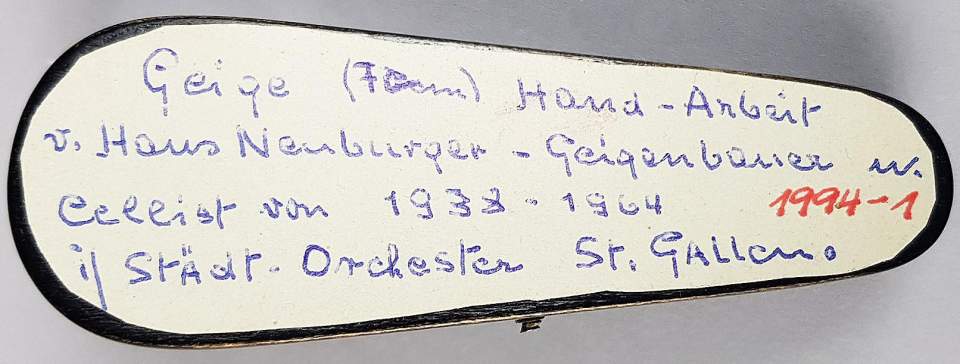 Geige (7cm) Hand-Arbeit
v. Hans Neuburger - Geigenbauer u.
Cellist von 1938 - 1964 1994-1
i/ Städt- Orchester St. Gallen.